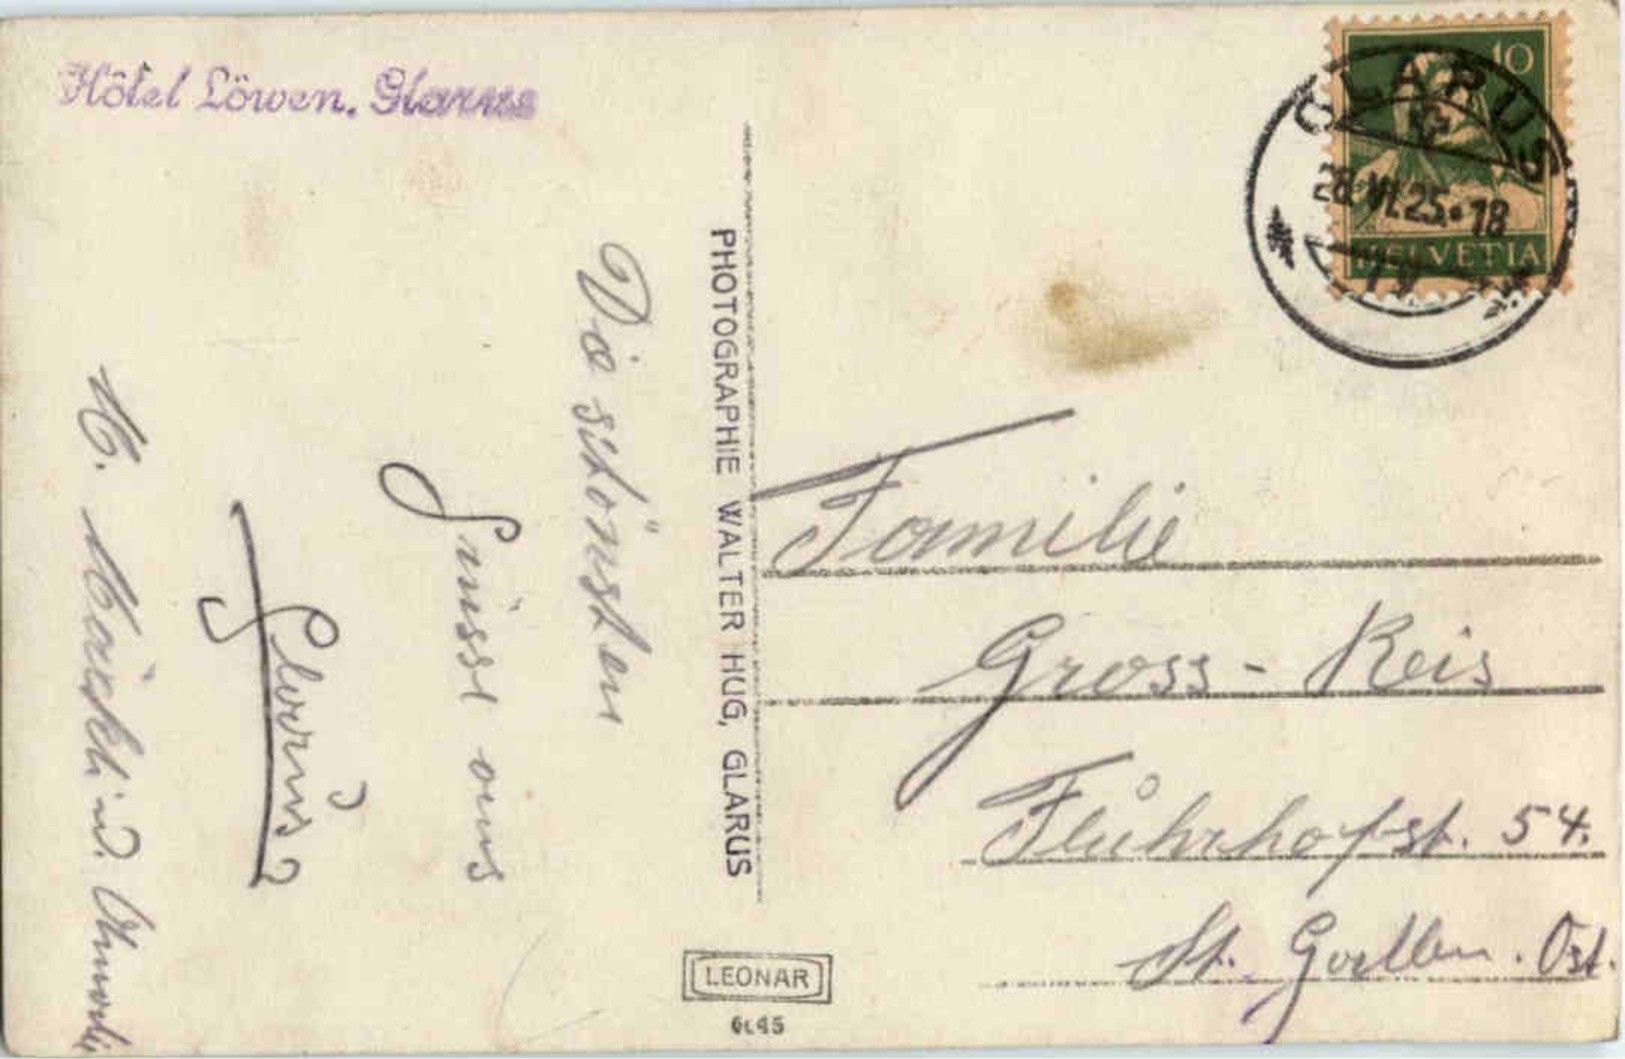 Hôtel Löwen, Glarus
Die schönsten
Grüsse aus
Glarus
PHOTOGRAPHIE WALTER HUG, GLARUS
LEONAR
6645
10
GLARUS
26.VI.25.18
HELVETIA
Familie
Gross - Reis
Flührhofst. 54.
St. Gallen. Ost.